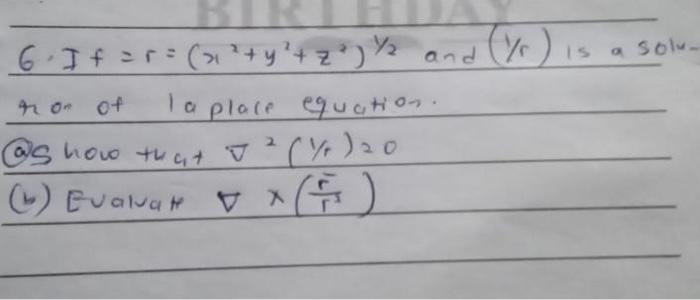 BIRTHDAY
6. If = r = (x² + y² + z²)^1/2 and (1/r) is a solu-
tion of laplace equation.
(a) Show that ∇² (1/r) = 0
(b) Evaluate ∇ × (r̄/r³)